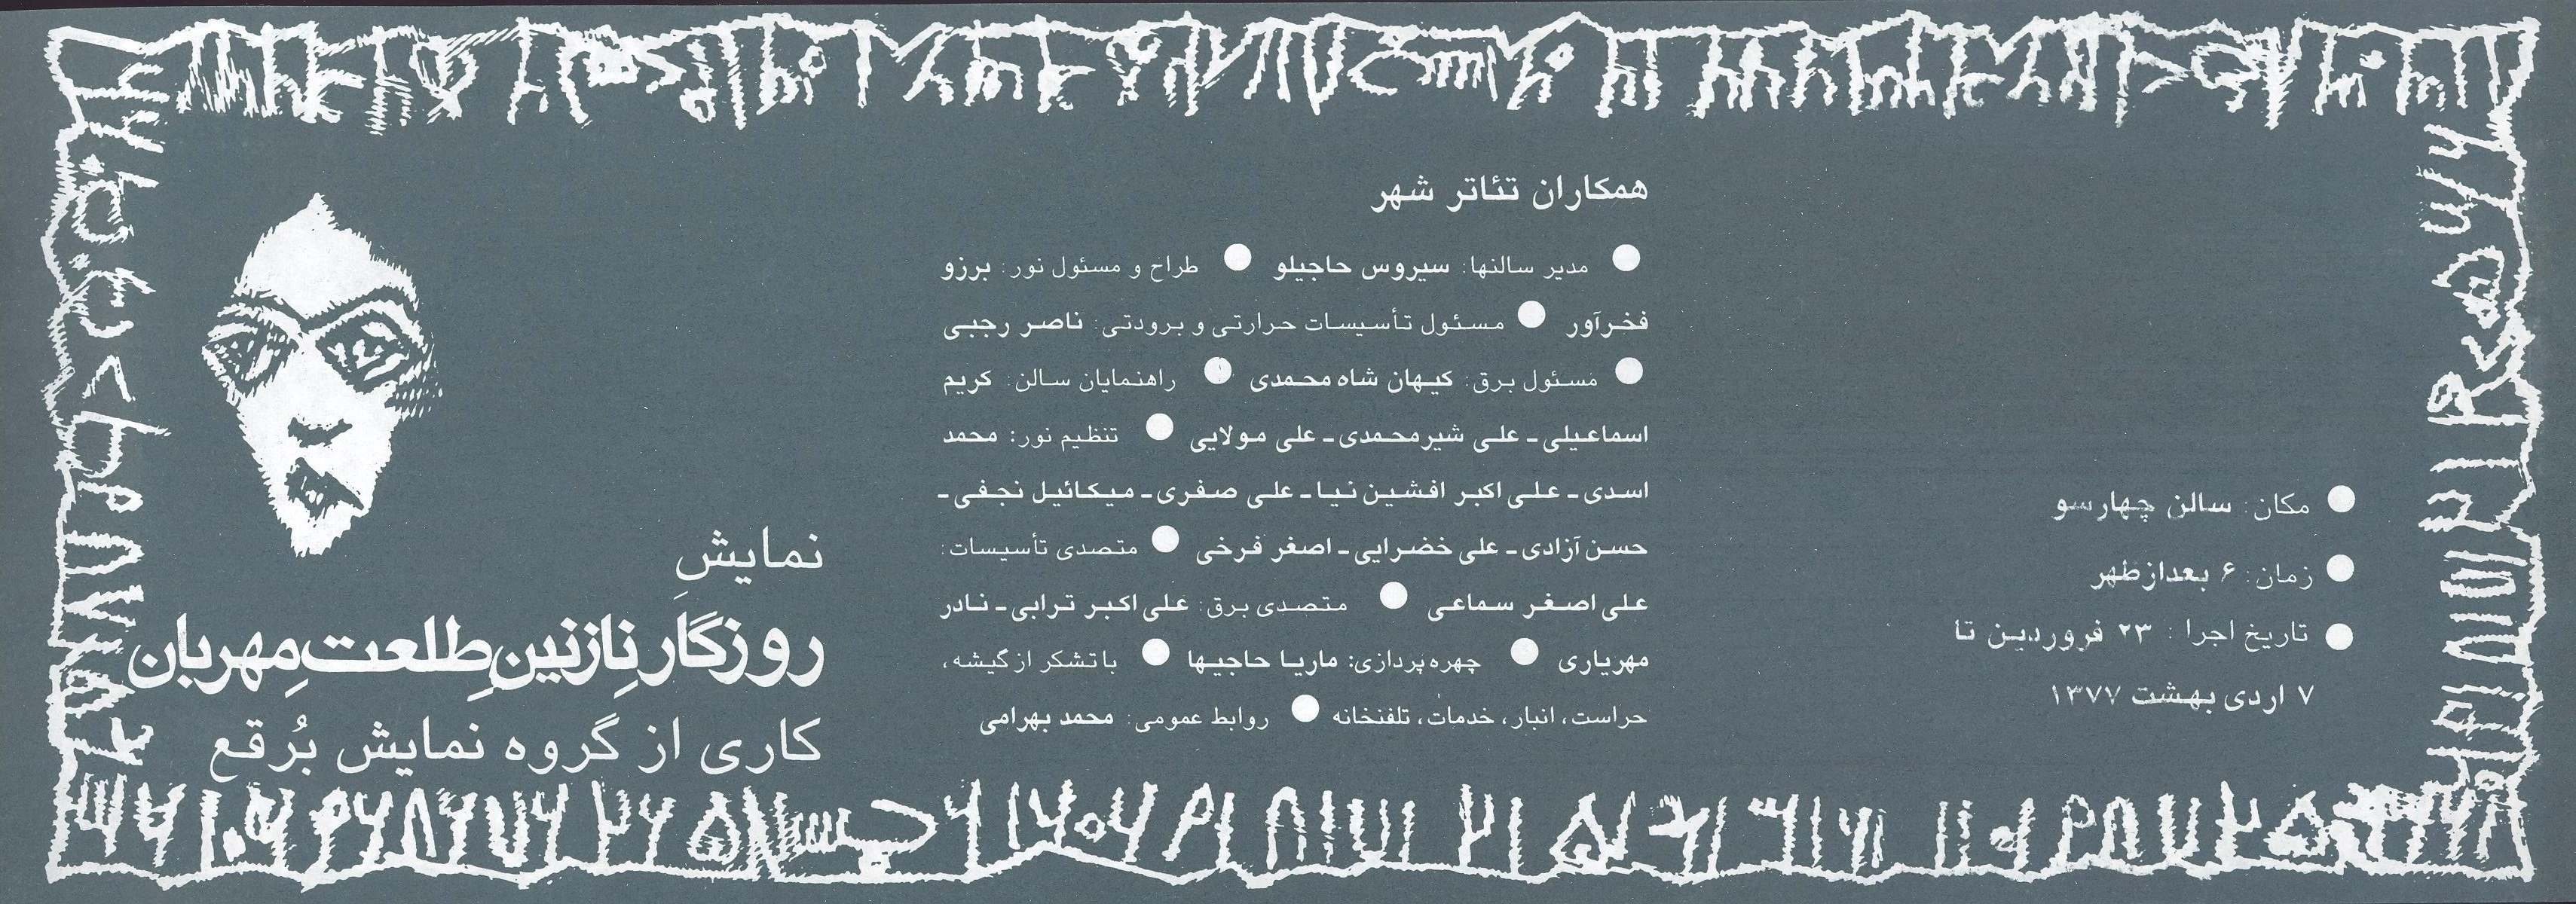 مکان: سالن چهارسو
زمان: ۶ بعدازظهر
تاریخ اجرا: ۲۳ فروردین تا
۷ اردی بهشت ۱۳۷۷
همکاران تئاتر شهر
● مدیر سالنها: سیروس حاجیلو ● طراح و مسئول نور: برزو
فخرآور ● مسئول تأسیسات حرارتی و برودتی: ناصر رجبی
● مسئول برق: کیهان شاه محمدی ● راهنمایان سالن: کریم
اسماعیلی ـ علی شیرمحمدی ـ علی مولایی ● تنظیم نور: محمد
اسدی ـ علی اکبر افشین نیا ـ علی صفری ـ میکائیل نجفی ـ
حسن آزادی ـ علی خضرایی ـ اصغر فرخی ● متصدی تأسیسات:
علی اصغر سماعی ● متصدی برق: علی اکبر ترابی ـ نادر
مهریاری ● چهره پردازی: ماریا حاجیها ● با تشکر از گیشه،
حراست، انبار، خدمات، تلفنخانه ● روابط عمومی: محمد بهرامی
نمایشِ
روزگارِ نازنینِ طلعتِ مِهربان
کاری از گروه نمایش بُرقع